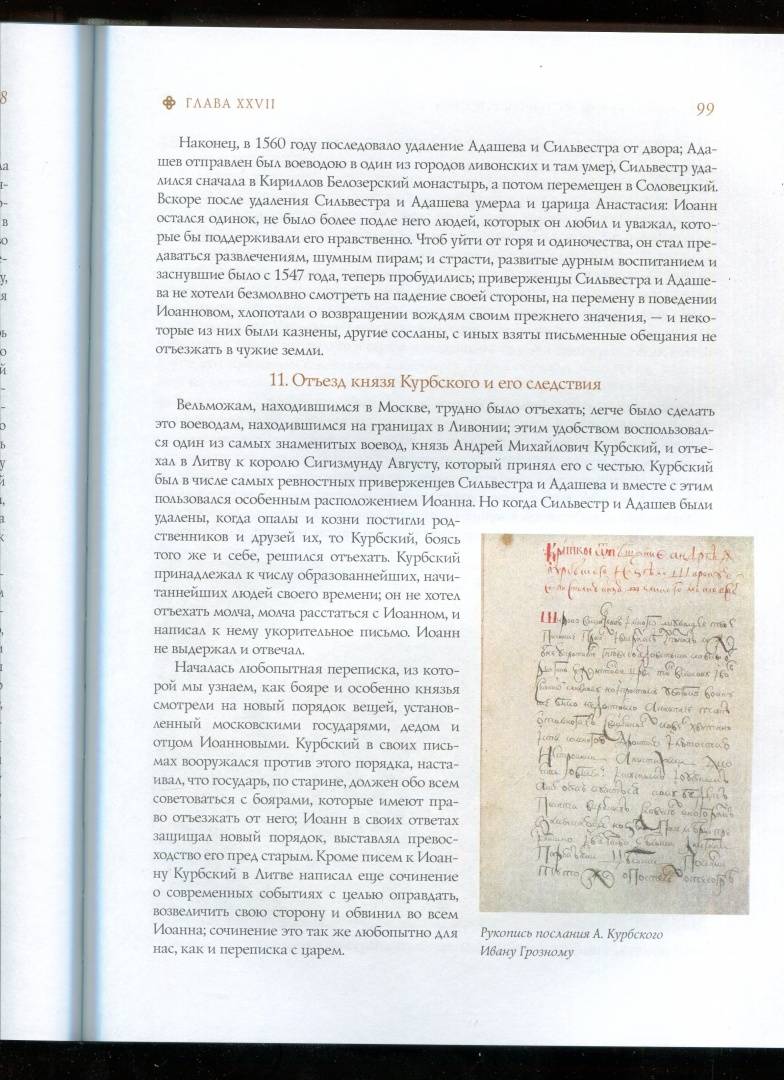 ГЛАВА XXVII
99
Наконец, в 1560 году последовало удаление Адашева и Сильвестра от двора; Ада-
шев отправлен был воеводою в один из городов ливонских и там умер, Сильвестр уда-
лился сначала в Кириллов Белозерский монастырь, а потом перемещен в Соловецкий.
Вскоре после удаления Сильвестра и Адашева умерла и царица Анастасия: Иоанн
остался одинок, не было более подле него людей, которых он любил и уважал, кото-
рые бы поддерживали его нравственно. Чтоб уйти от горя и одиночества, он стал пре-
даваться развлечениям, шумным пирам; и страсти, развитые дурным воспитанием и
заснувшие было с 1547 года, теперь пробудились; приверженцы Сильвестра и Адаше-
ва не хотели безмолвно смотреть на падение своей стороны, на перемену в поведении
Иоанновом, хлопотали о возвращении вождям своим прежнего значения, — и неко-
торые из них были казнены, другие сосланы, с иных взяты письменные обещания не
отъезжать в чужие земли.
11. Отъезд князя Курбского и его следствия
Вельможам, находившимся в Москве, трудно было отъехать; легче было сделать
это воеводам, находившимся на границах в Ливонии; этим удобством воспользовал-
ся один из самых знаменитых воевод, князь Андрей Михайлович Курбский, и отъе-
хал в Литву к королю Сигизмунду Августу, который принял его с честью. Курбский
был в числе самых ревностных приверженцев Сильвестра и Адашева и вместе с этим
пользовался особенным расположением Иоанна. Но когда Сильвестр и Адашев были
удалены, когда опалы и козни постигли род-
ственников и друзей их, то Курбский, боясь
того же и себе, решился отъехать. Курбский
принадлежал к числу образованнейших, начи-
таннейших людей своего времени; он не хотел
отъехать молча, молча расстаться с Иоанном, и
написал к нему укорительное письмо. Иоанн
не выдержал и отвечал.
Началась любопытная переписка, из кото-
рой мы узнаем, как бояре и особенно князья
смотрели на новый порядок вещей, установ-
ленный московскими государями, дедом и
отцом Иоанновыми. Курбский в своих пись-
мах вооружался против этого порядка, наста-
ивал, что государь, по старине, должен обо всем
советоваться с боярами, которые имеют пра-
во отъезжать от него; Иоанн в своих ответах
защищал новый порядок, выставлял превос-
ходство его пред старым. Кроме писем к Иоан-
ну Курбский в Литве написал еще сочинение
о современных событиях с целью оправдать,
возвеличить свою сторону и обвинил во всем
Иоанна; сочинение это так же любопытно для
нас, как и переписка с царем.
Рукопись послания А. Курбского
Ивану Грозному